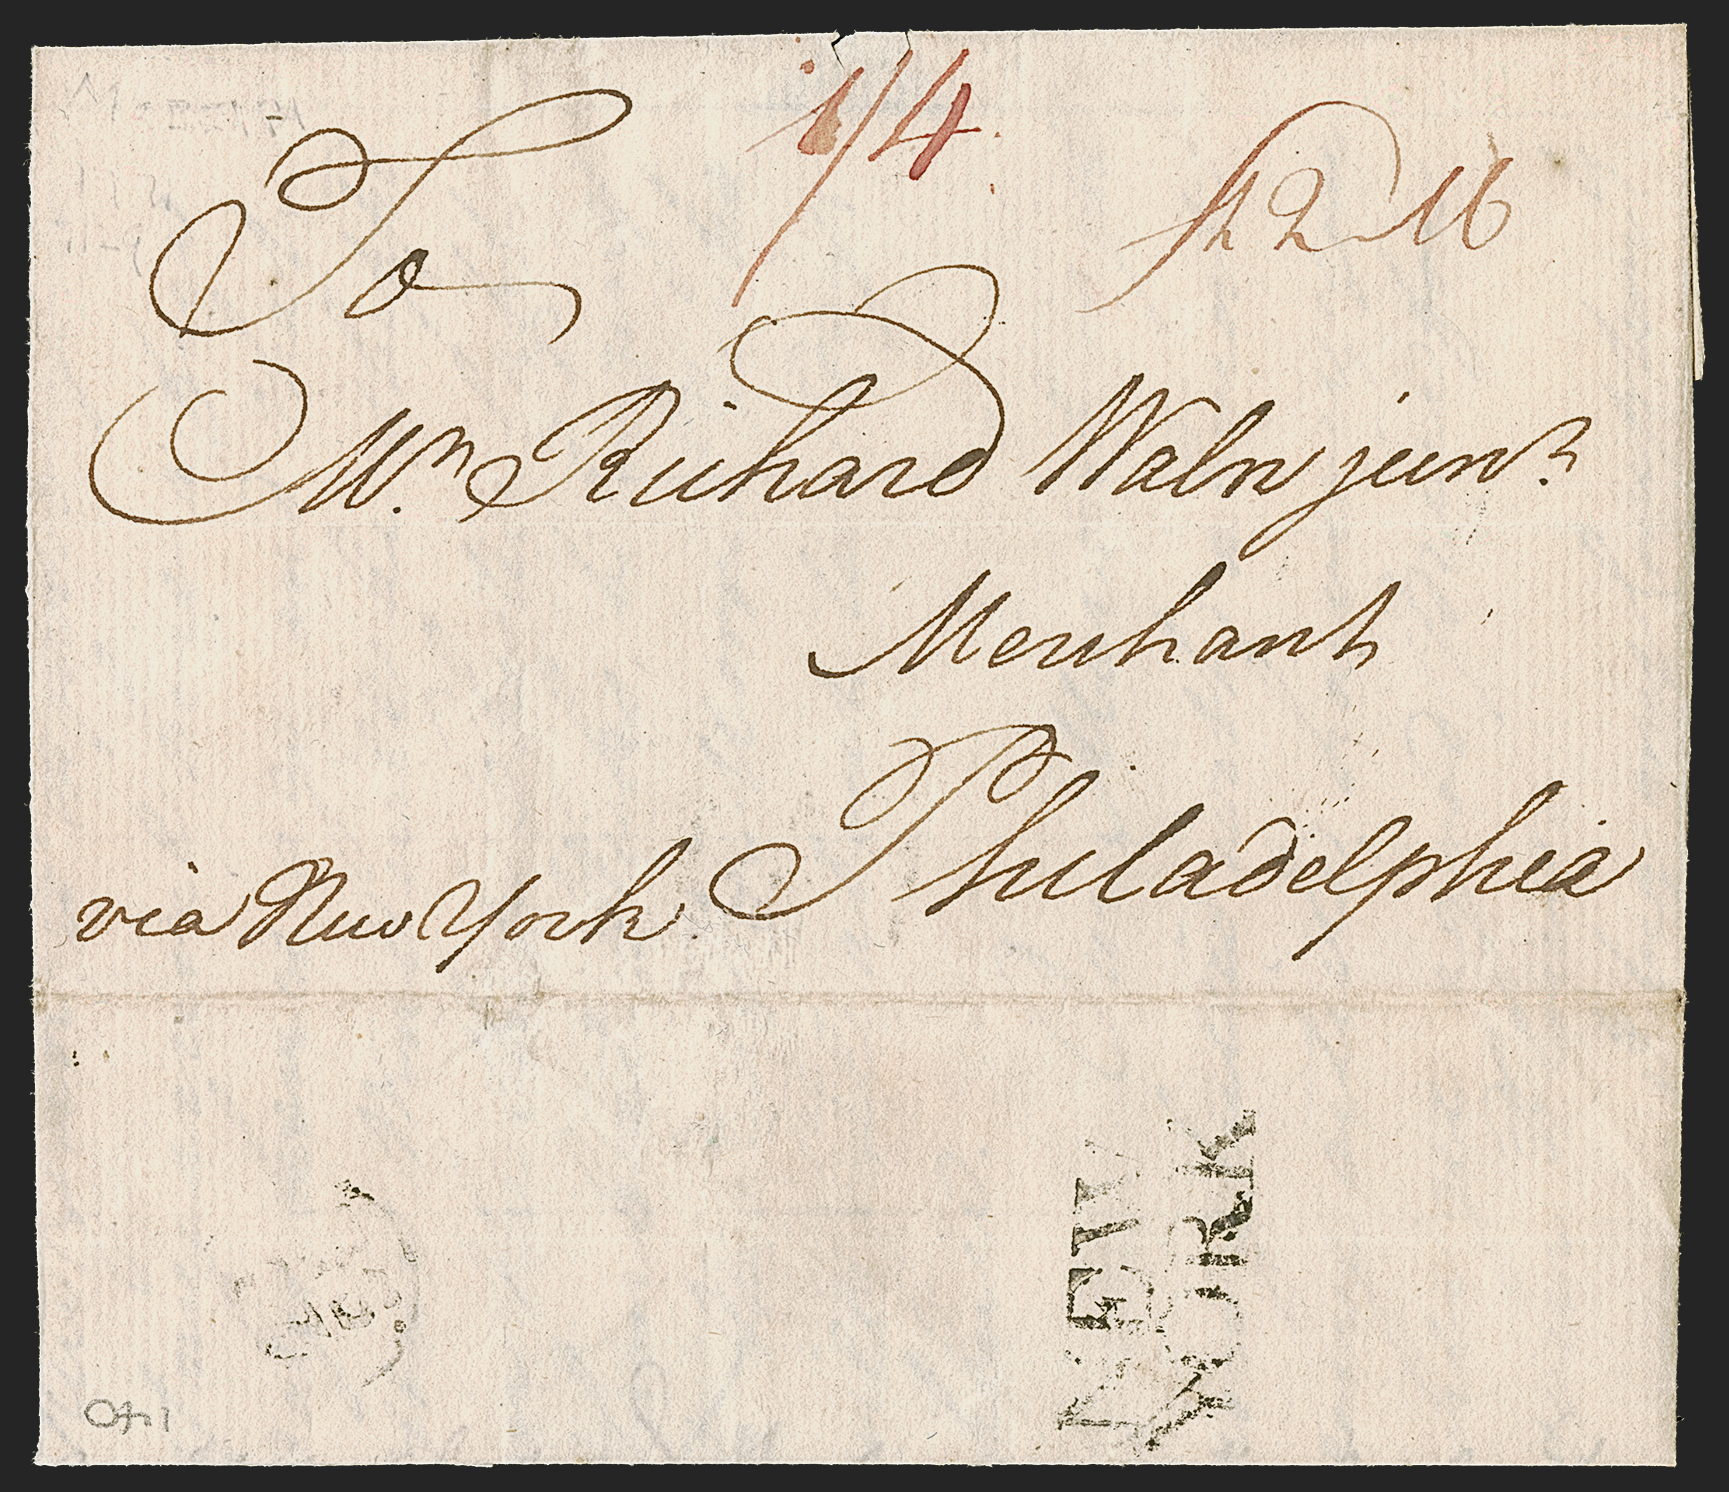 1/4
2 16
To
Mr. Richard Waln junr.
Merchant
Philadelphia
via New York
NEW
YORK